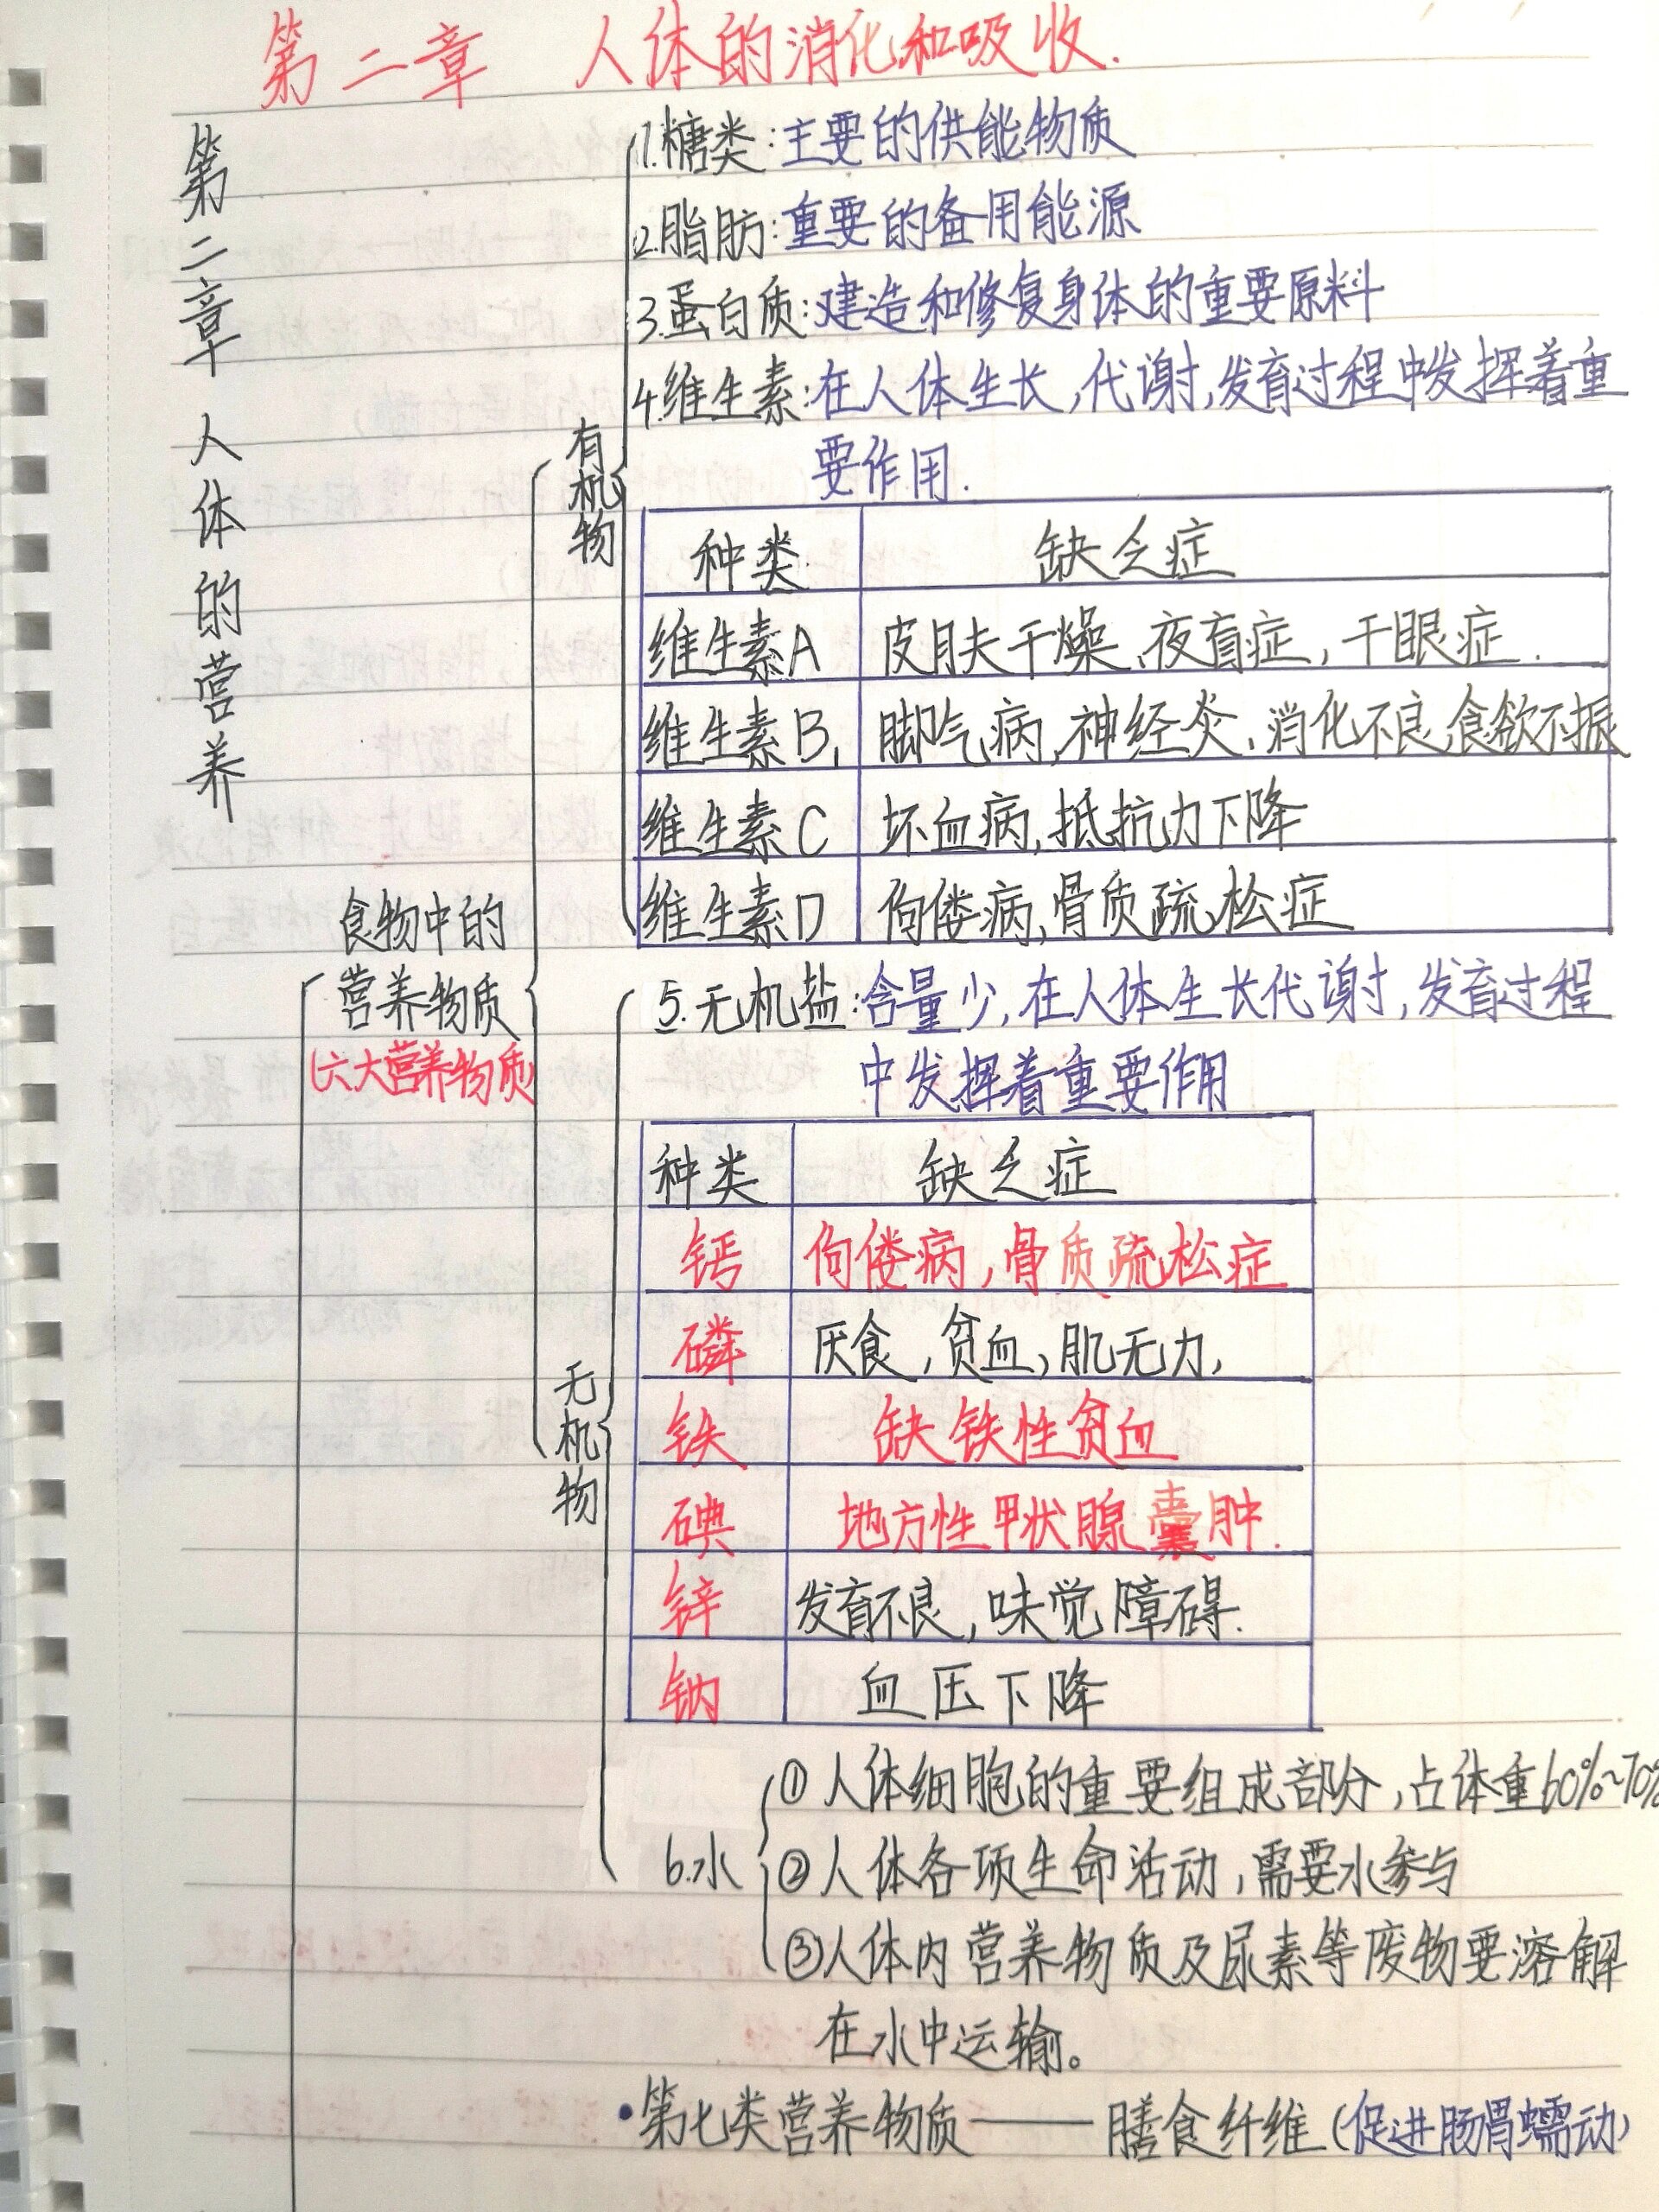 第二章 人体的消化和吸收.
第二章 人体的营养
食物中的
营养物质
(六大营养物质)
有机物
1.糖类:主要的供能物质
2.脂肪:重要的备用能源
3.蛋白质:建造和修复身体的重要原料
4.维生素:在人体生长,代谢,发育过程中发挥着重
要作用.
种类 缺乏症
维生素A 皮肤干燥、夜盲症,干眼症.
维生素B₁ 脚气病,神经炎、消化不良,食欲不振
维生素C 坏血病,抵抗力下降
维生素D 佝偻病,骨质疏松症
无机物
5.无机盐:含量少,在人体生长代谢,发育过程
中发挥着重要作用
种类 缺乏症
钙 佝偻病,骨质疏松症
磷 厌食,贫血、肌无力,
铁 缺铁性贫血
碘 地方性甲状腺囊肿.
锌 发育不良,味觉障碍.
钠 血压下降
6.水
①人体细胞的重要组成部分,占体重60%~70%
②人体各项生命活动,需要水参与
③人体内营养物质及尿素等废物要溶解
在水中运输。
•第七类营养物质——膳食纤维(促进肠胃蠕动)